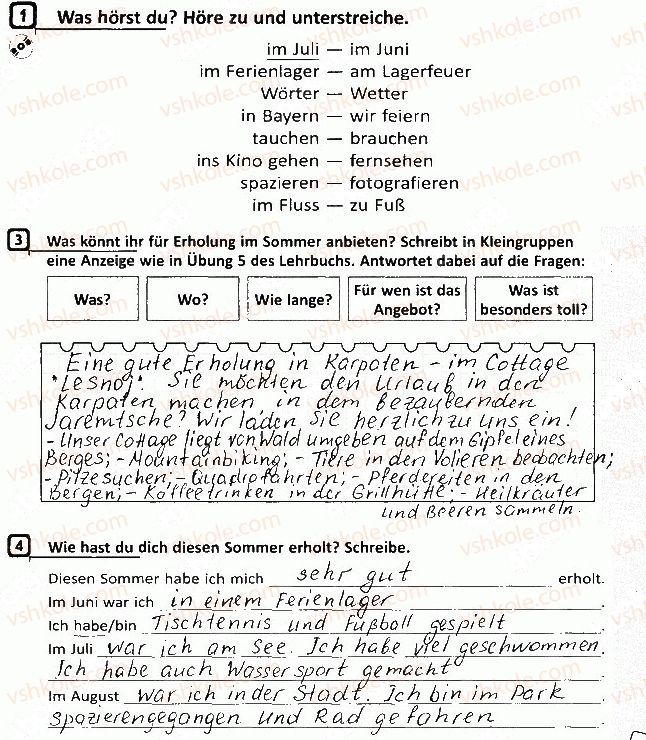 1 Was hörst du? Höre zu und unterstreiche.
im Juli — im Juni
im Ferienlager — am Lagerfeuer
Wörter — Wetter
in Bayern — wir feiern
tauchen — brauchen
ins Kino gehen — fernsehen
spazieren — fotografieren
im Fluss — zu Fuß
3 Was könnt ihr für Erholung im Sommer anbieten? Schreibt in Kleingruppen
eine Anzeige wie in Übung 5 des Lehrbuchs. Antwortet dabei auf die Fragen:
Was? Wo? Wie lange? Für wen ist das Angebot? Was ist besonders toll?
Eine gute Erholung in Karpaten - im Cottage
"Lesnoj". Sie möchten den Urlaub in den
Karpaten machen, in dem bezaubernden
Jaremtsche? Wir laden Sie herzlich zu uns ein!
- Unser Cottage liegt von Wald umgeben auf dem Gipfel eines
Berges; - Mountainbiking; - Tiere in den Volieren beobachten;
- Pilze suchen; - Quadrofahrten; - Pferdereiten in den
Bergen; - Kaffeetrinken in der Grillhütte; - Heilkräuter
und Beeren sammeln.
4 Wie hast du dich diesen Sommer erholt? Schreibe.
Diesen Sommer habe ich mich sehr gut erholt.
Im Juni war ich in einem Ferienlager.
Ich habe/bin Tischtennis und Fußball gespielt.
Im Juli war ich am See. Ich habe viel geschwommen.
Ich habe auch Wassersport gemacht.
Im August war ich in der Stadt. Ich bin im Park
spazierengegangen und Rad gefahren.